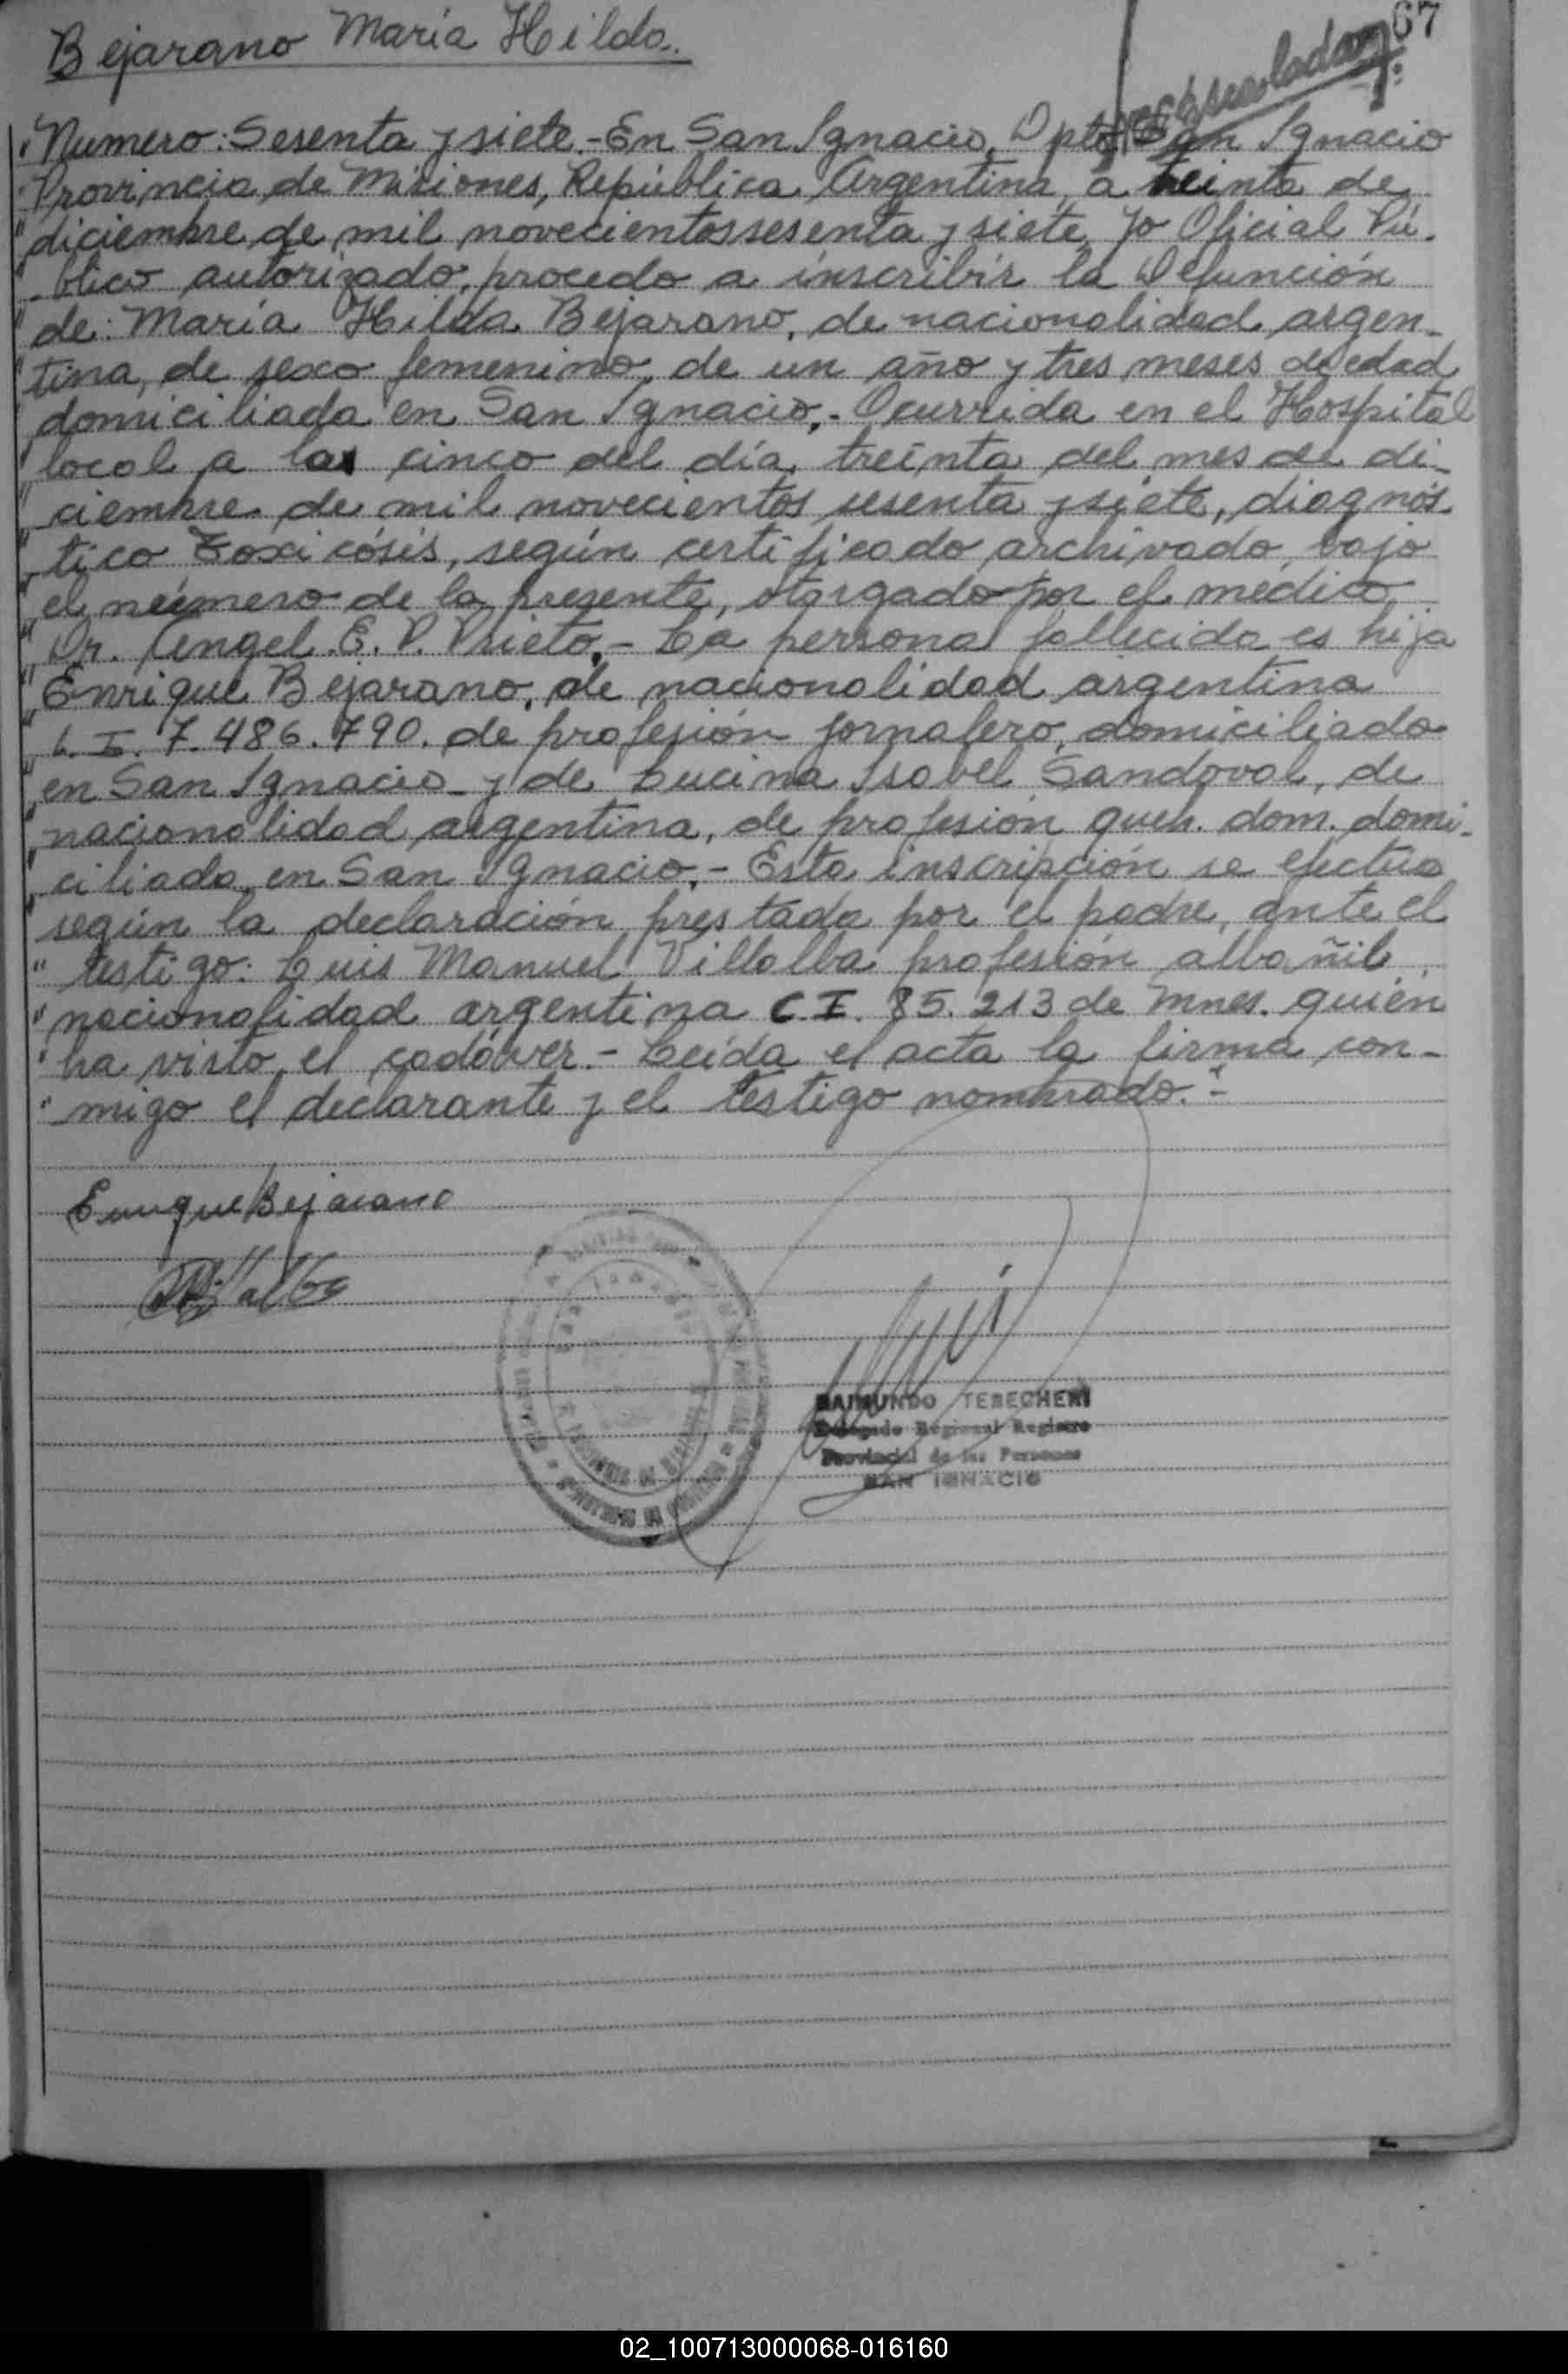 67
Bejarano María Hilda.
Numero: Sesenta y siete.- En San Ignacio, Dpto. San Ignacio
Provincia de Misiones, República Argentina, a treinta de
diciembre de mil novecientos sesenta y siete, Yo Oficial Pú-
blico autorizado, procedo a inscribir la Defunción
de: María Hilda Bejarano, de nacionalidad argen-
tina, de sexo femenino, de un año y tres meses de edad
domiciliada en San Ignacio.- Ocurrida en el Hospital
local a las cinco del día treinta del mes de di-
ciembre de mil novecientos sesenta y siete, diagnós
tico Toxicósis, según certificado archivado bajo
el número de la presente, otorgado por el medico
Dr. Angel E. P. Prieto.- La persona fallecida es hija
Enrique Bejarano, de nacionalidad argentina
L. I. 7.486.790. de profesión jornalero, domiciliado
en San Ignacio y de Lucina Isabel Sandoval, de
nacionalidad argentina, de profesión queh. dom. domi-
ciliada en San Ignacio.- Esta inscripción se efectúa
según la declaración prestada por el padre, ante el
testigo: Luis Manuel Villalba profesión albañil
nacionalidad argentina C.I. 85.213 de Mnes. quién
ha visto el cadáver.- Leída el acta la firma con-
migo el declarante y el testigo nombrado.-
Enrique Bejarano
Villalba
RAIMUNDO TERECHERI
Delegado Regional Registro
Provincial de las Personas
SAN IGNACIO
02_100713000068-016160